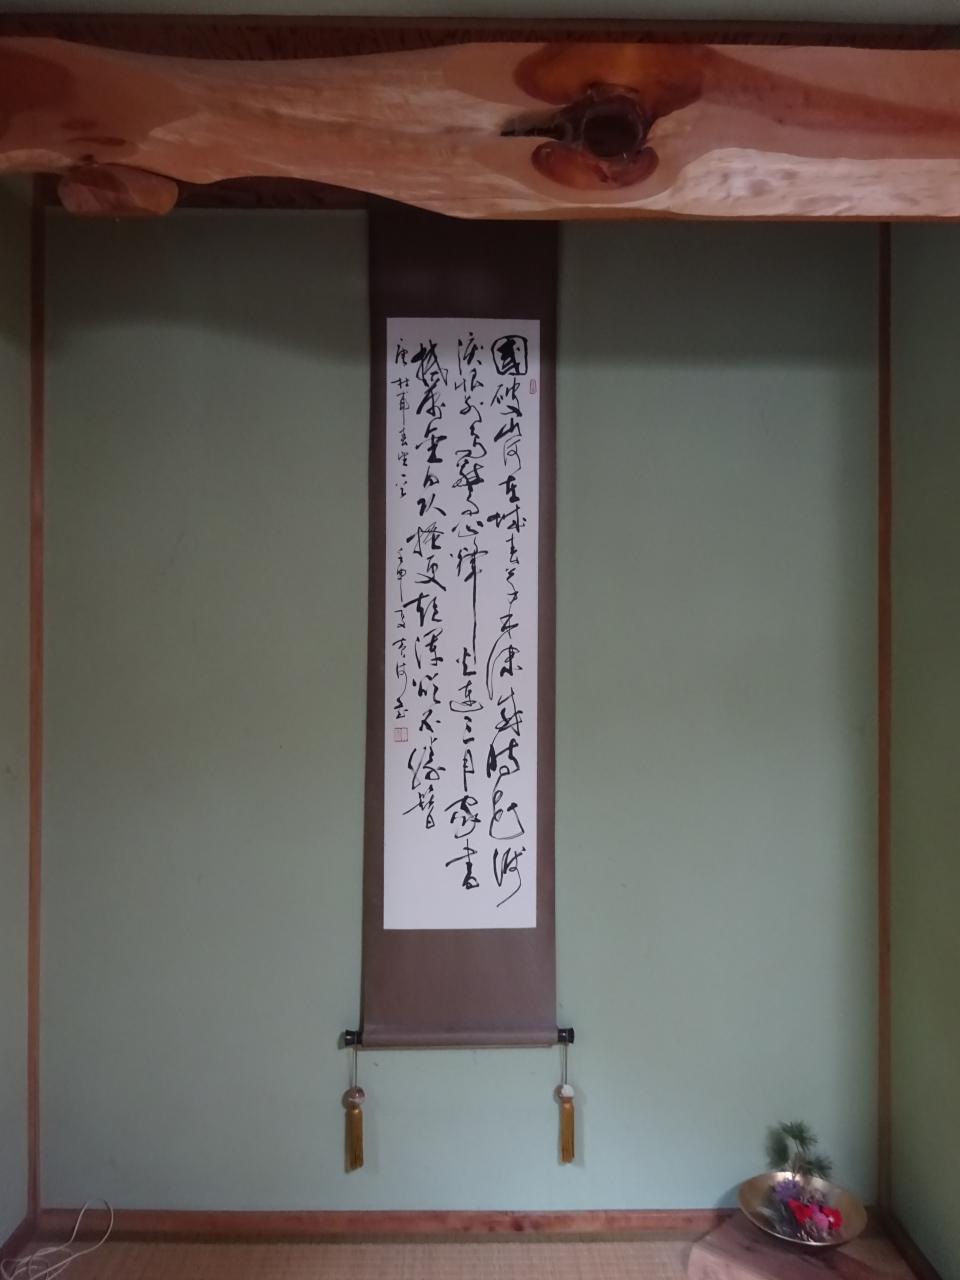 國破山河在城春草木深感時花濺
淚恨別鳥驚心烽火連三月家書
抵萬金白頭搔更短渾欲不勝簪
唐杜甫春望 壬申夏